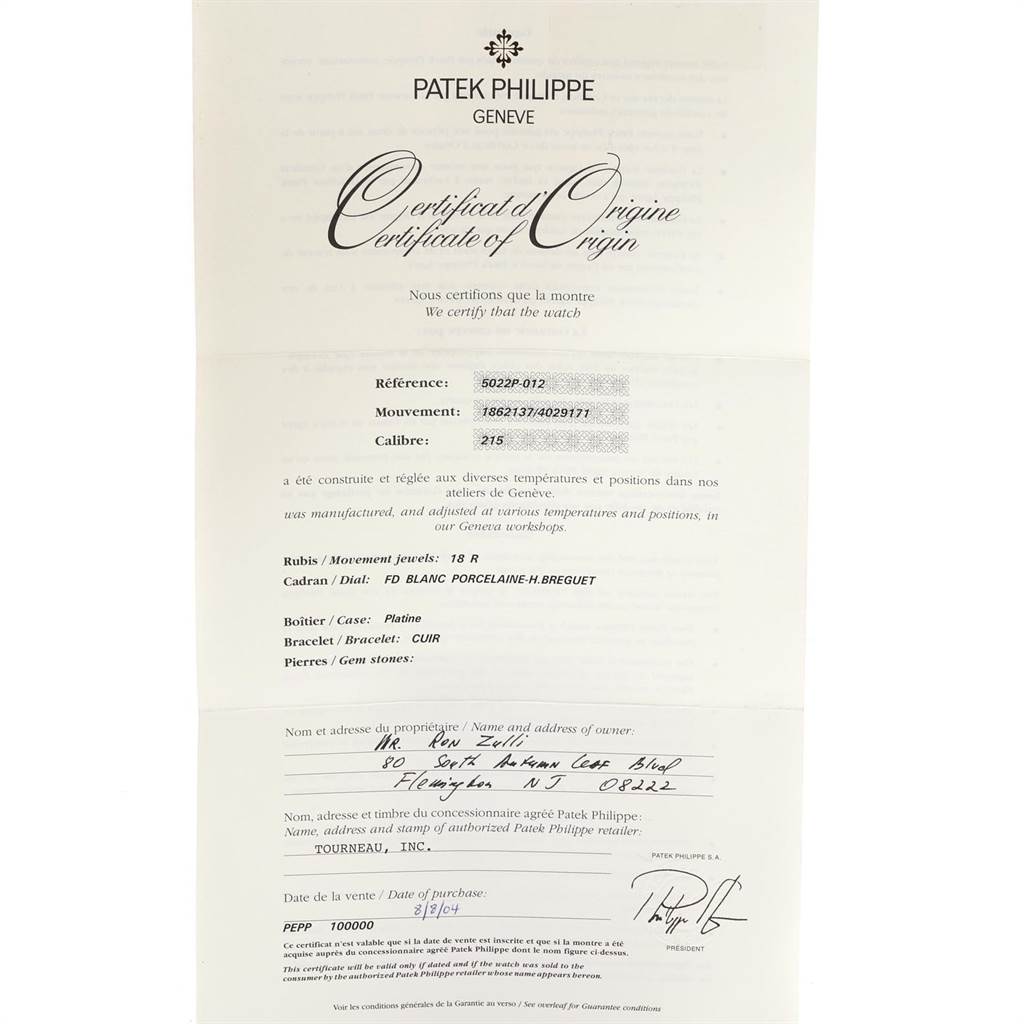 PATEK PHILIPPE
GENEVE
Certificat d'Origine
Certificate of Origin
Nous certifions que la montre
We certify that the watch
Référence: 5022P-012
Mouvement: 1862137/4029171
Calibre: 215
a été construite et réglée aux diverses températures et positions dans nos
ateliers de Genève.
was manufactured, and adjusted at various temperatures and positions, in
our Geneva workshops.
Rubis / Movement jewels: 18 R
Cadran / Dial: FD BLANC PORCELAINE-H.BREGUET
Boîtier / Case: Platine
Bracelet / Bracelet: CUIR
Pierres / Gem stones:
Nom et adresse du propriétaire / Name and address of owner:
MR. Ron Zulli
80 South Autumn Leaf Blvd
Flemington NJ 08222
Nom, adresse et timbre du concessionnaire agréé Patek Philippe:
Name, address and stamp of authorized Patek Philippe retailer:
TOURNEAU, INC.
PATEK PHILIPPE S.A.
Date de la vente / Date of purchase:
8/8/04
PEPP 100000
PRÉSIDENT
Ce certificat n'est valable que si la date de vente est inscrite et que si la montre a été
acquise auprès du concessionnaire agréé Patek Philippe dont le nom figure ci-dessus.
This certificate will be valid only if dated and if the watch was sold to the
consumer by the authorized Patek Philippe retailer whose name appears hereon.
Voir les conditions générales de la Garantie au verso / See overleaf for Guarantee conditions